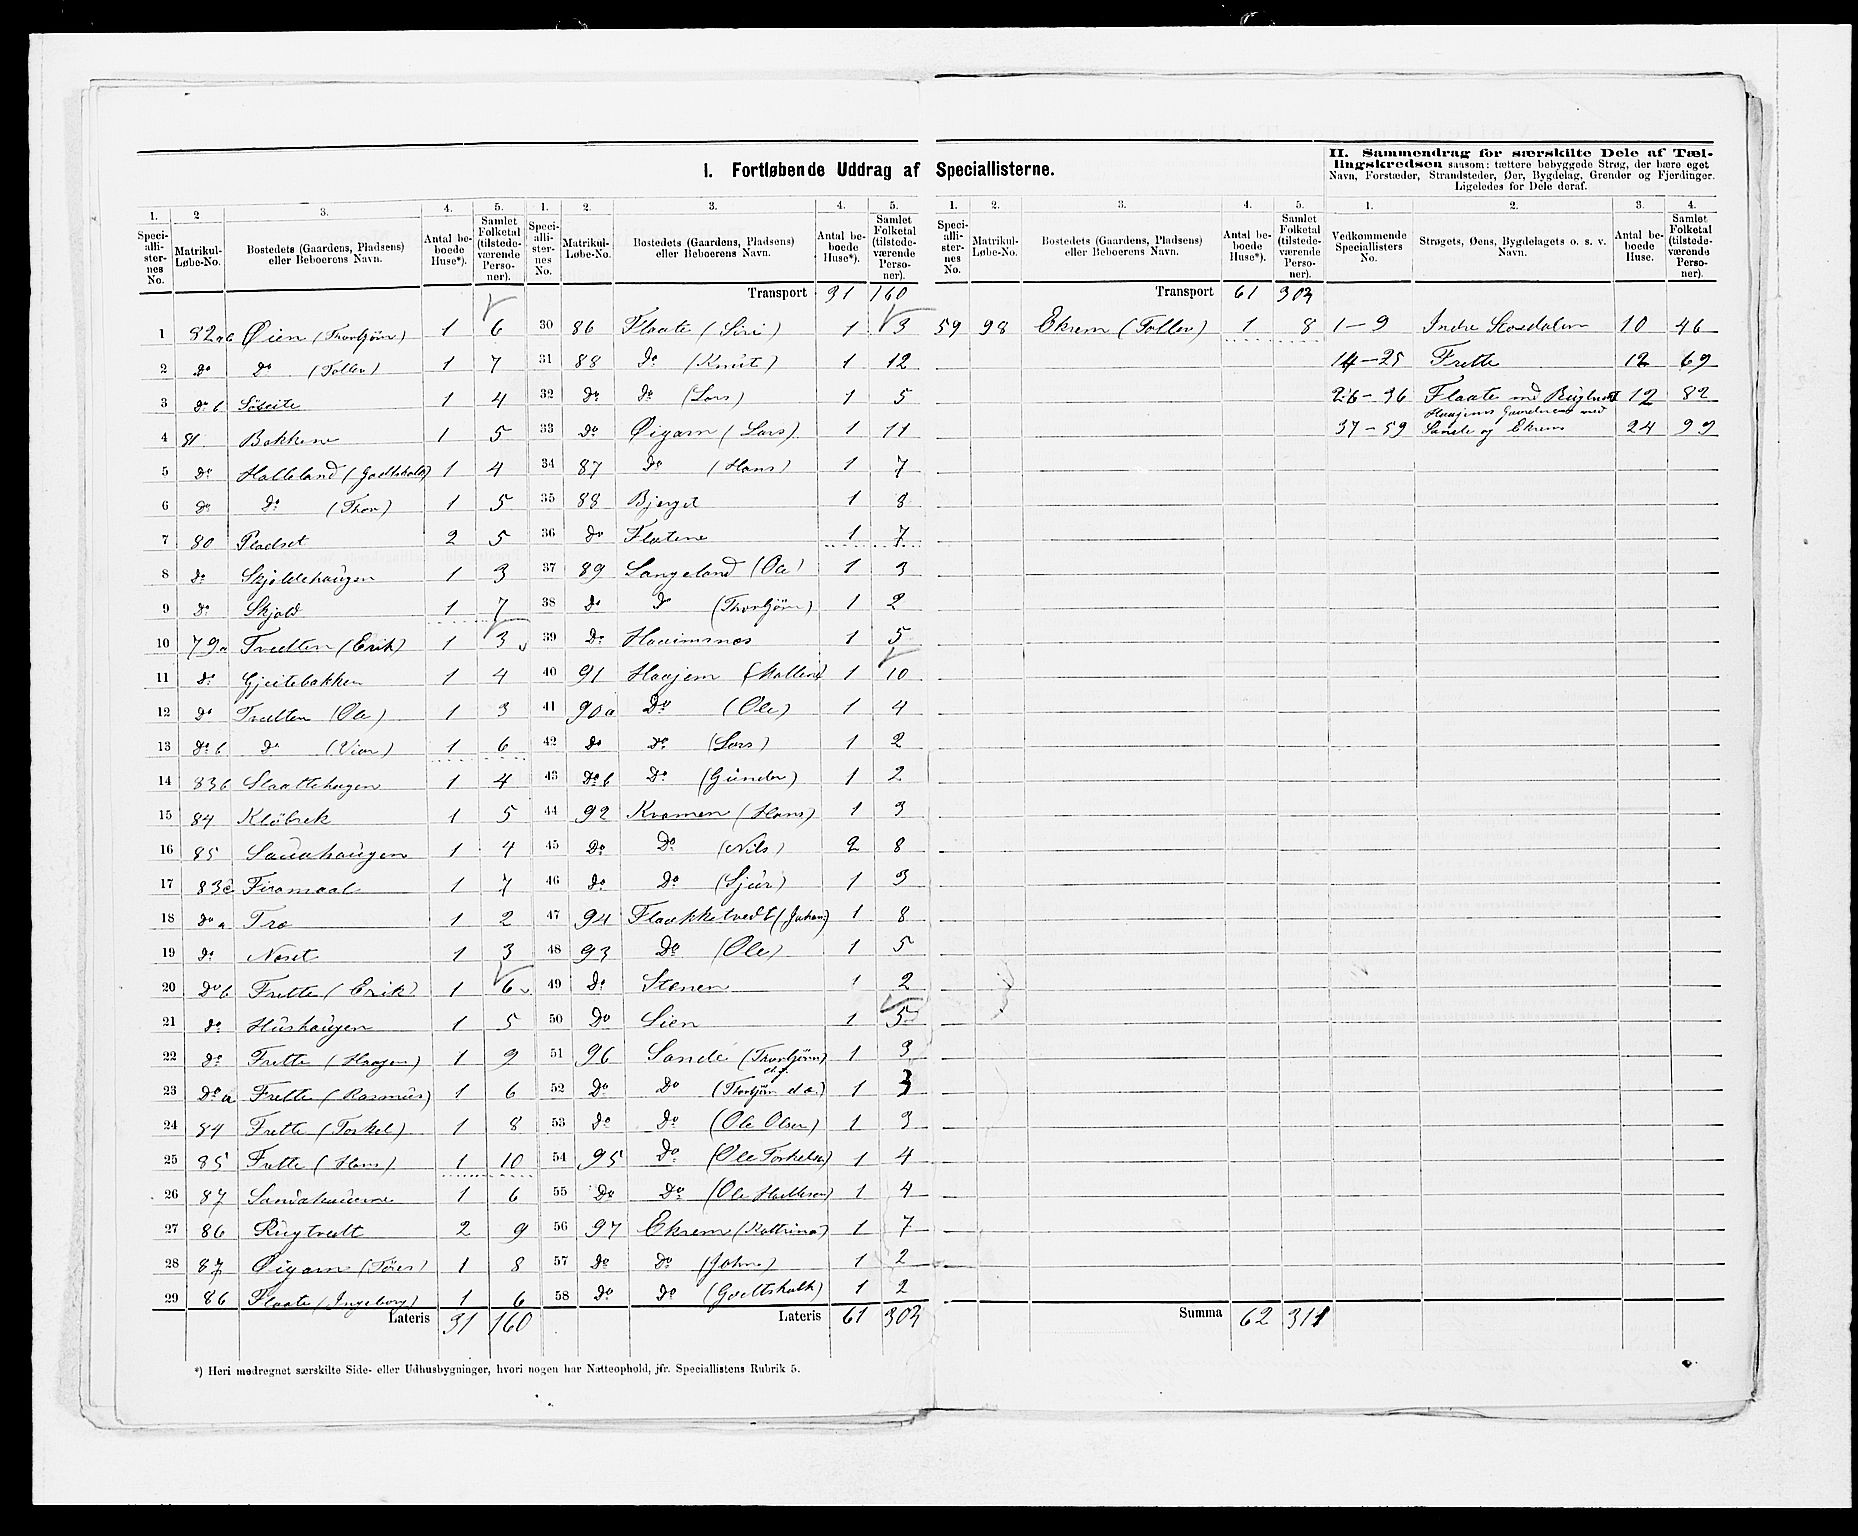 I. Fortløbende Uddrag af Speciallisterne.
II. Sammendrag for særskilte Dele af Tæl-
lingskredsen saasom: tættere bebyggede Strøg, der bære eget
Navn, Forstæder, Strandsteder, Øer, Bygdelag, Grender og Fjerdinger.
Ligeledes for Dele deraf.
1. 2 3. 4. 5. 1. 2. 3. 4. 5. 1. 2. 3. 4. 5. 1. 2. 3. 4.
Speciallisternes No. Matrikul-Løbe-No. Bostedets (Gaardens, Pladsens) eller Beboerens Navn. Antal beboede Huse*). Samlet Folketal (tilstedeværende Personer).
Speciallisternes No. Matrikul-Løbe-No. Bostedets (Gaardens, Pladsens) eller Beboerens Navn. Antal beboede Huse*). Samlet Folketal (tilstedeværende Personer).
Speciallisternes No. Matrikul-Løbe-No. Bostedets (Gaardens, Pladsens) eller Beboerens Navn. Antal beboede Huse*). Samlet Folketal (tilstedeværende Personer).
Vedkommende Speciallisters No. Strøgets, Øens, Bygdelagets o. s. v. Navn. Antal beboede Huse. Samlet Folketal (tilstedeværende Personer).
1 82ab Øien (Thorbjörn) 1 6
2 do do (Tollev) 1 7
3 do b Söseite 1 4
4 81 Bakkene 1 5
5 do Halleland (Godtskalk) 1 4
6 do do (Thor) 1 5
7 80 Pladset 2 5
8 do Skjoldehaugen 1 3
9 do Skjold 1 7
10 79a Tvedten (Erik) 1 3
11 do Gjeitebakken 1 4
12 do Tvedten (Ole) 1 3
13 do b do (Viar) 1 6
14 83b Slaattehagen 1 4
15 84 Klöbrek 1 5
16 85 Sandhaugen 1 4
17 83c Firamaal 1 7
18 do a Træ 1 2
19 do Neset 1 3
20 do b Frette (Erik) 1 6
21 do Hushaugen 1 5
22 do Frette (Haagen) 1 9
23 do a Frette (Rasmus) 1 6
24 84 Frette (Torkel) 1 8
25 85 Frette (Hans) 1 10
26 87 1 6
27 86 Rugtvedt 2 9
28 87 Øigarn (Töres) 1 8
29 86 Flaate (Ingeborg) 1 6
Lateris 31 160
Transport 31 160
30 86 Flaate (Siri) 1 3
31 88 do (Knut) 1 12
32 do do (Lars) 1 5
33 do Øigarn (Lars) 1 11
34 87 do (Hans) 1 7
35 88 Bjerget 1 8
36 do Flatene 1 7
37 89 Langeland (Ole) 1 3
38 do do (Thorbjörn) 1 2
39 do Haaimsnes 1 5
40 91 Haajem 1 10
41 90a do (Ole) 1 4
42 do do (Lars) 1 2
43 do b do (Gunder) 1 2
44 92 Kvamen (Hans) 1 3
45 do do (Nils) 2 8
46 do do (Sjur) 1 3
47 94 Flaakketvedt (Johan) 1 8
48 93 do (Ole) 1 5
49 do Stenen 1 2
50 do Lien 1 5
51 96 Sande (Thorbjörn) 1 3
52 do do (Thorbjörn d. æ.) 1 3
53 do do (Ole Olsen) 1 3
54 95 do (Ole Torkelsen) 1 4
55 do do 1 4
56 97 Ekrem (Kattrina) 1 7
57 do do (John) 1 2
58 do do (Godtskalk) 1 2
Lateris 61 303
Transport 61 303
59 98 Ekrem (Tollev) 1 8
Summa 62 311
1–9 Indre 10 46
14–25 Frette 12 69
26–36 Flaate med Rugtvedt 12 82
37–59 Haajems Gaardene med
Sande og Ekrem 24 99
*) Heri medregnet særskilte Side- eller Udhusbygninger, hvori nogen har Natteophold, jfr. Speciallistens Rubrik 5.